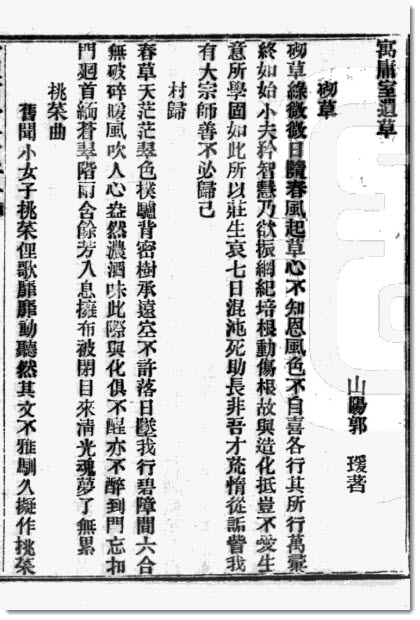 寓庸室遺草
山陽郭　瑗著
砌草
砌草綠微微日隨春風起草心不知恩風色不自喜各行其所行萬彙
終如始小夫矜智慧乃欲振綱紀培根動傷根故與造化抵豈不愛生
意所學固如此所以莊生哀七日混沌死助長非吾才荒惰從詬訾我
有大宗師善不必歸己
村歸
春草天茫茫翠色撲驢背密樹承遠空不許落日墜我行碧障間六合
無破碎暖風吹人心盎然濃酒味此際與化俱不醒亦不醉到門忘扣
門廻首緬蒼翠階雨含餘芳入息擁布被閉目來清光魂夢了無累
挑菜曲
舊聞小女子挑菜俚歌靡靡動聽然其文不雅馴久擬作挑菜